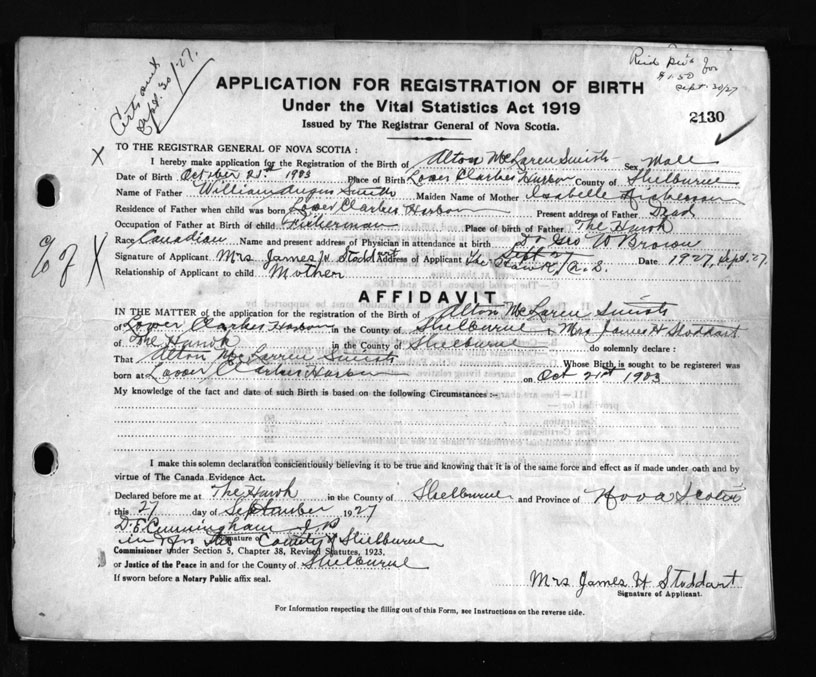 Sept. 30/27.
for
$1.50
Sept. 30/27
APPLICATION FOR REGISTRATION OF BIRTH
Under the Vital Statistics Act 1919
2130
Issued by The Registrar General of Nova Scotia.
X TO THE REGISTRAR GENERAL OF NOVA SCOTIA :
I hereby make application for the Registration of the Birth of Alton McLaren Smith Sex Male
Date of Birth October 21st 1903 Place of Birth Lower Clarkes Harbor County of Shelburne
Name of Father William Angus Smith Maiden Name of Mother Isabelle Nickerson
Residence of Father when child was born Lower Clarkes Harbor Present address of Father Dead
Occupation of Father at Birth of child Fisherman Place of birth of Father The Hawk
Race Canadian Name and present address of Physician in attendance at birth Dr Geo W Brown
Signature of Applicant Mrs James H Stoddart Address of Applicant The Hawk, N.S. Date 1927, Sept. 27.
Relationship of Applicant to child Mother
X
AFFIDAVIT
IN THE MATTER of the application for registration of the Birth of Alton McLaren Smith
of Lower Clarkes Harbor in the County of Shelburne I, Mrs James H Stoddart
of The Hawk in the County of Shelburne do solemnly declare :
That Alton McLarren Smith Whose Birth is sought to be registered was
born at Lower Clarkes Harbor on Oct 21st 1903
My knowledge of the fact and date of such Birth is based on the following Circumstances :-
I make this solemn declaration conscientiously believing it to be true and knowing that it is of the same force and effect as if made under oath and by
virtue of The Canada Evidence Act.
Declared before me at The Hawk in the County of Shelburne and Province of Nova Scotia
this 27 day of September 1927
D. E. Cunningham J P
Signature of
in & for the County of Shelburne
Commissioner under Section 5, Chapter 38, Revised Statutes, 1923.
or Justice of the Peace in and for the County of Shelburne
If sworn before a Notary Public affix seal.
Mrs James H Stoddart
Signature of Applicant.
For Information respecting the filling out of this Form, see Instructions on the reverse side.